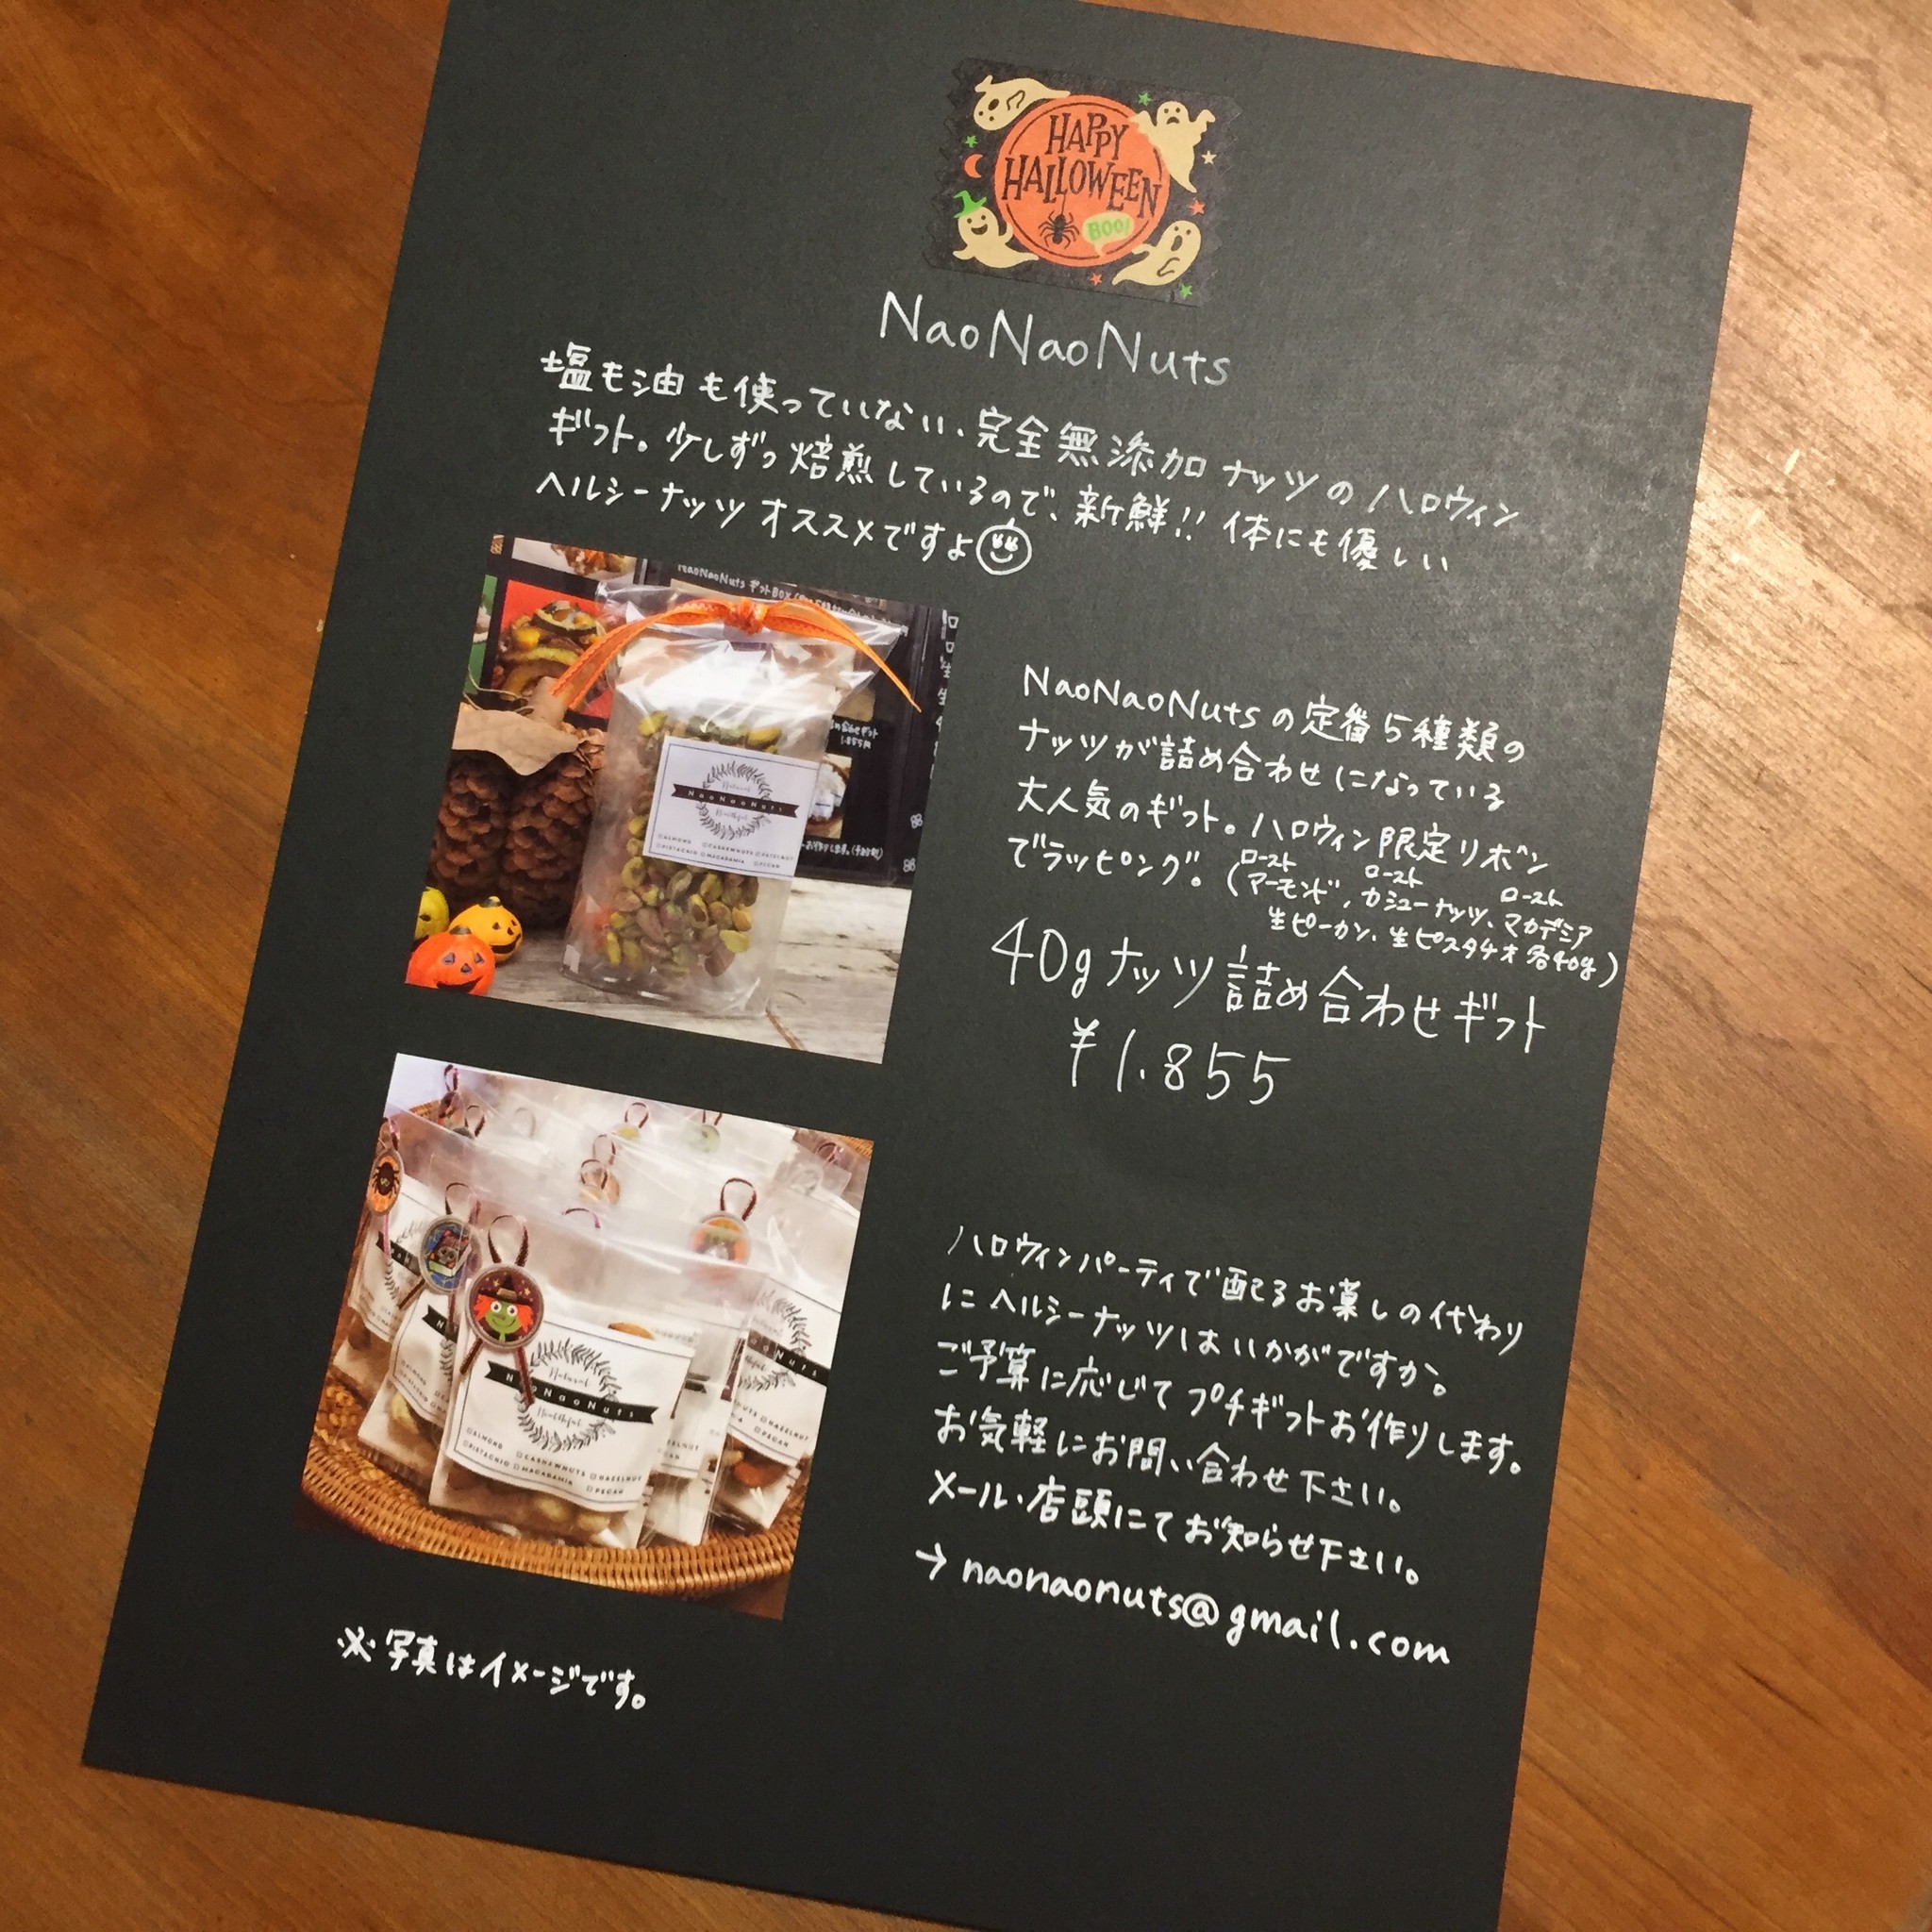 HAPPY
HALLOWEEN
BOO!
NaoNaoNuts
塩も油も使っていない、完全無添加ナッツのハロウィン
ギフト。少しずつ焙煎しているので、新鮮!! 体にも優しい
ヘルシーナッツオススメですよ
NaoNaoNuts ギフトBOX
1.855円
Natural
NaoNaoNuts
Healthful
ALMOND CASHEWNUTS HAZELNUT
PISTACHIO MACADAMIA PECAN
NaoNaoNutsの定番5種類の
ナッツが詰め合わせになっている
大人気のギフト。ハロウィン限定リボン
でラッピング。(アーモンド,カシューナッツ、マカデミア
ロースト ロースト ロースト
生ピーカン、生ピスタチオ各40g)
40gナッツ詰め合わせギフト
¥1.855
ハロウィンパーティで配るお菓しの代わり
にヘルシーナッツはいかがですか。
ご予算に応じてプチギフトお作りします。
お気軽にお問い合わせ下さい。
メール・店頭にてお知らせ下さい。
→naonaonuts@gmail.com
Natural
NaoNaoNuts
Healthful
ALMOND CASHEWNUTS HAZELNUT
PISTACHIO MACADAMIA PECAN
※写真はイメージです。